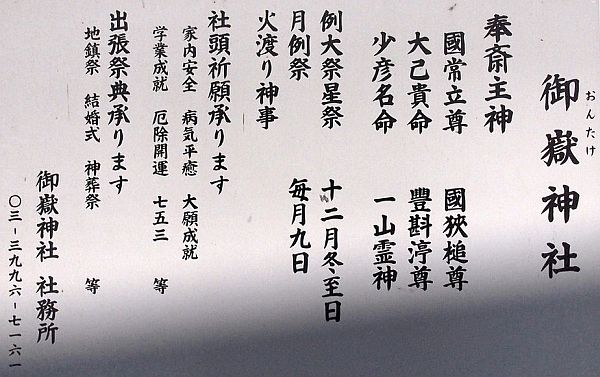 御嶽神社
おんたけ
奉斎主神
国常立尊 國狹槌尊
大己貴命 豐斟渟尊
少彦名命 一山霊神
例大祭星祭 十二月冬至日
月例祭 毎月九日
火渡り神事
社頭祈願承ります
家内安全 病気平癒 大願成就
学業成就 厄除開運 七五三 等
出張祭典承ります
地鎮祭 結婚式 神葬祭 等
御嶽神社 社務所
〇三-三九九六-七一六一